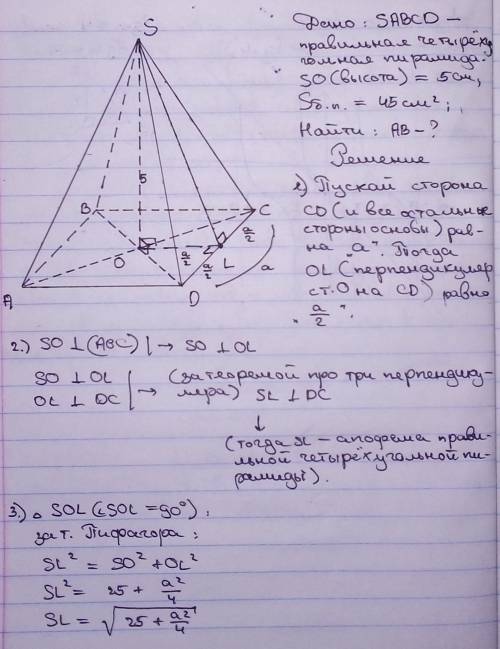 S
Дано: SABCD –
правильная четырёху
гольная пирамида.
SO (высота) = 5 см,
Sб.п. = 45 см²;
Найти: AB - ?
Решение
1) Пускай сторона
CD (и все остальные
стороны основы) рав-
на "a". Тогда
OL (перпендикуляр
с т. O на CD) равно
"a/2".
5
B
C
a/2
O
a/2
L
a/2
a
A
D
2.) SO ⊥ (ABC) | → SO ⊥ OL
SO ⊥ OL
OL ⊥ DC
→ (за теоремой про три перпендику-
ляра) SL ⊥ DC
↓
(тогда SL – апофема прави-
льной четырёхугольной пи-
рамиды).
3.) △ SOL (∠SOL = 90°):
за т. Пифагора:
SL² = SO² + OL²
SL² = 25 + a²/4
SL = √(25 + a²/4)